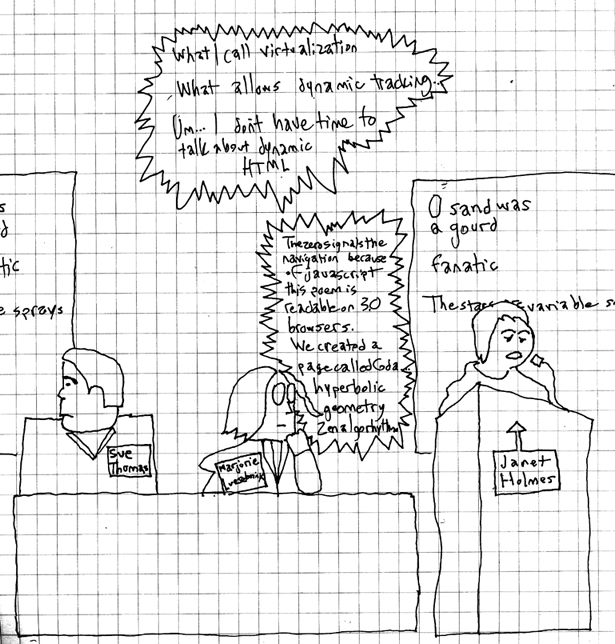 What I call virtualization
What allows dynamic tracking..
Um... I don't have time to
talk about dynamic
HTML
Thezerosignalsthe
navigation because
of javascript
this poem is
readable on 3.0
browsers.
We created a
page called Gda
hyperbolic
geometry
Zen algorhythm
s
d
tic
e sprays
O sand was
a gourd
fanatic
The stars are variable s
Sue
Thomas
Marjorie
Janet
Holmes